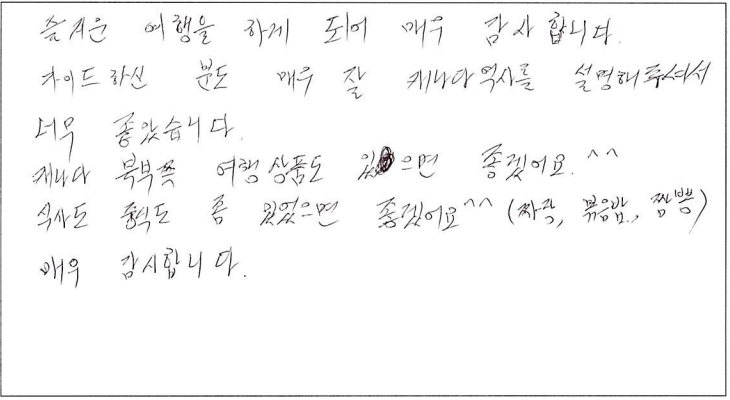 즐거운 여행을 하게 되어 매우 감사합니다.
가이드하신 분도 매우 잘 캐나다역사를 설명해주셔서
너무 좋았습니다.
캐나다 북부쪽 여행상품도 있으면 좋겠어요.^^
식사도 중식도 좀 있었으면 좋겠어요^^ (짜장, 볶음밥, 짬뽕)
매우 감사합니다.